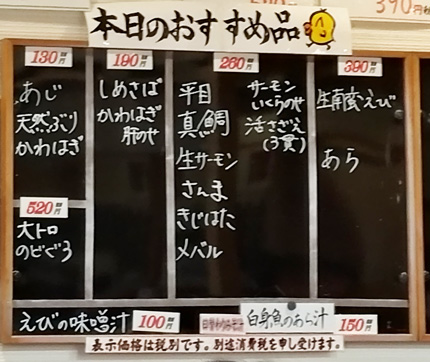 本日のおすすめ品
130円
あじ
天然ぶり
かわはぎ
520円
大トロ
のどぐろ
190円
しめさば
かわはぎ
肝のせ
260円
平目
真鯛
生サーモン
さんま
きじはた
メバル
サーモン
いくらのせ
活さざえ
(3貫)
390円
生南蛮えび
あら
えびの味噌汁 100円
日替わりみそ汁
白身魚のあら汁 150円
表示価格は税別です。別途消費税を申し受けます。
390円